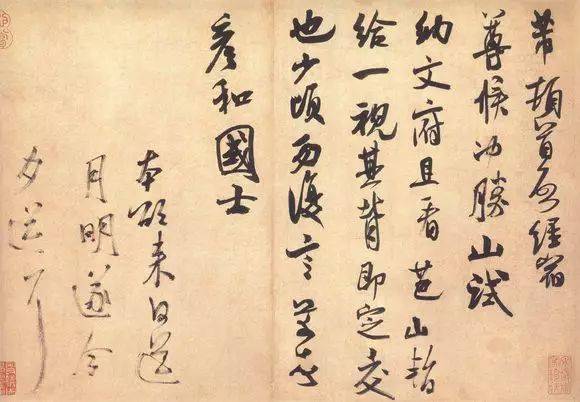 芾頓首啟經宿
尊候冲勝山試
納文府且看芭山暫
給一視其背即定交
也少頃勿復言芾頓首
彥和國士
本欲來日送
月明遂今
夕送耳